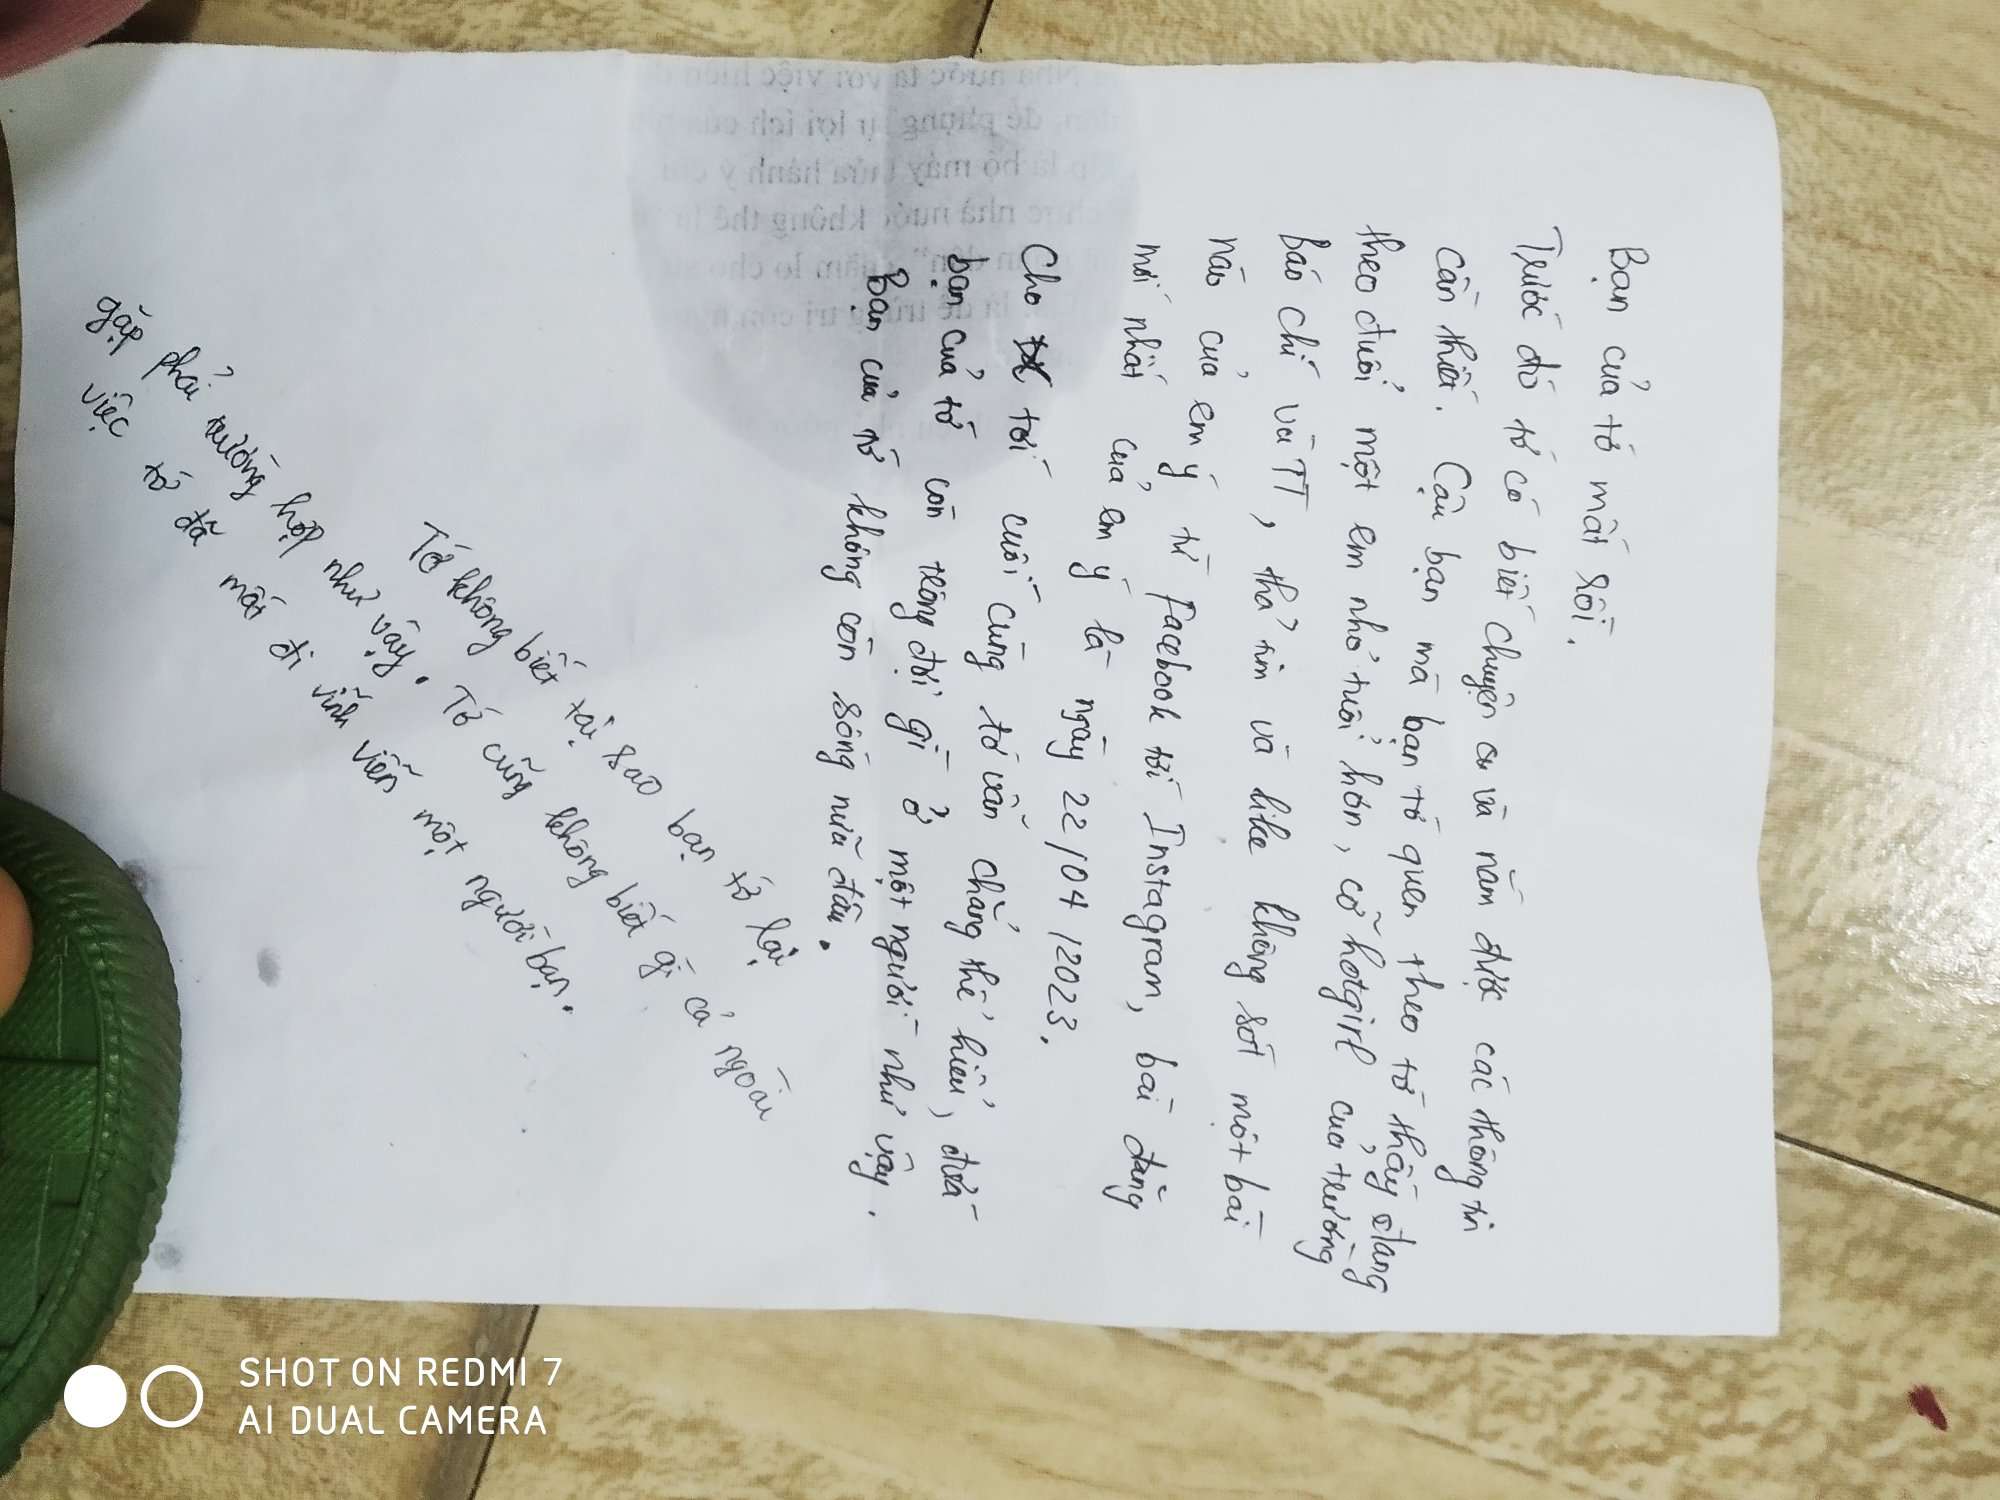 Bạn của tớ mất rồi.
Trước đó tớ có biết chuyện và nắm được các thông tin
cần thiết. Cậu bạn mà bạn tớ quen theo tớ thấy đang
theo đuổi một em nhỏ tuổi hơn, cỡ hotgirl của trường
Báo chí và TT, thả tim và like không sót một bài
nào của em ý từ Facebook tới Instagram, bài đăng
mới nhất của em ý là ngày 22/04/2023.
Cho tới cuối cùng tớ vẫn chẳng thể hiểu, đứa
bạn của tớ còn trông đợi gì ở một người như vậy.
Bạn của tớ không còn sống nữa đâu.
Tớ không biết tại sao bạn tớ lại
gặp phải trường hợp như vậy. Tớ cũng không biết gì cả ngoài
việc tớ đã mất đi vĩnh viễn một người bạn.
SHOT ON REDMI 7
AI DUAL CAMERA